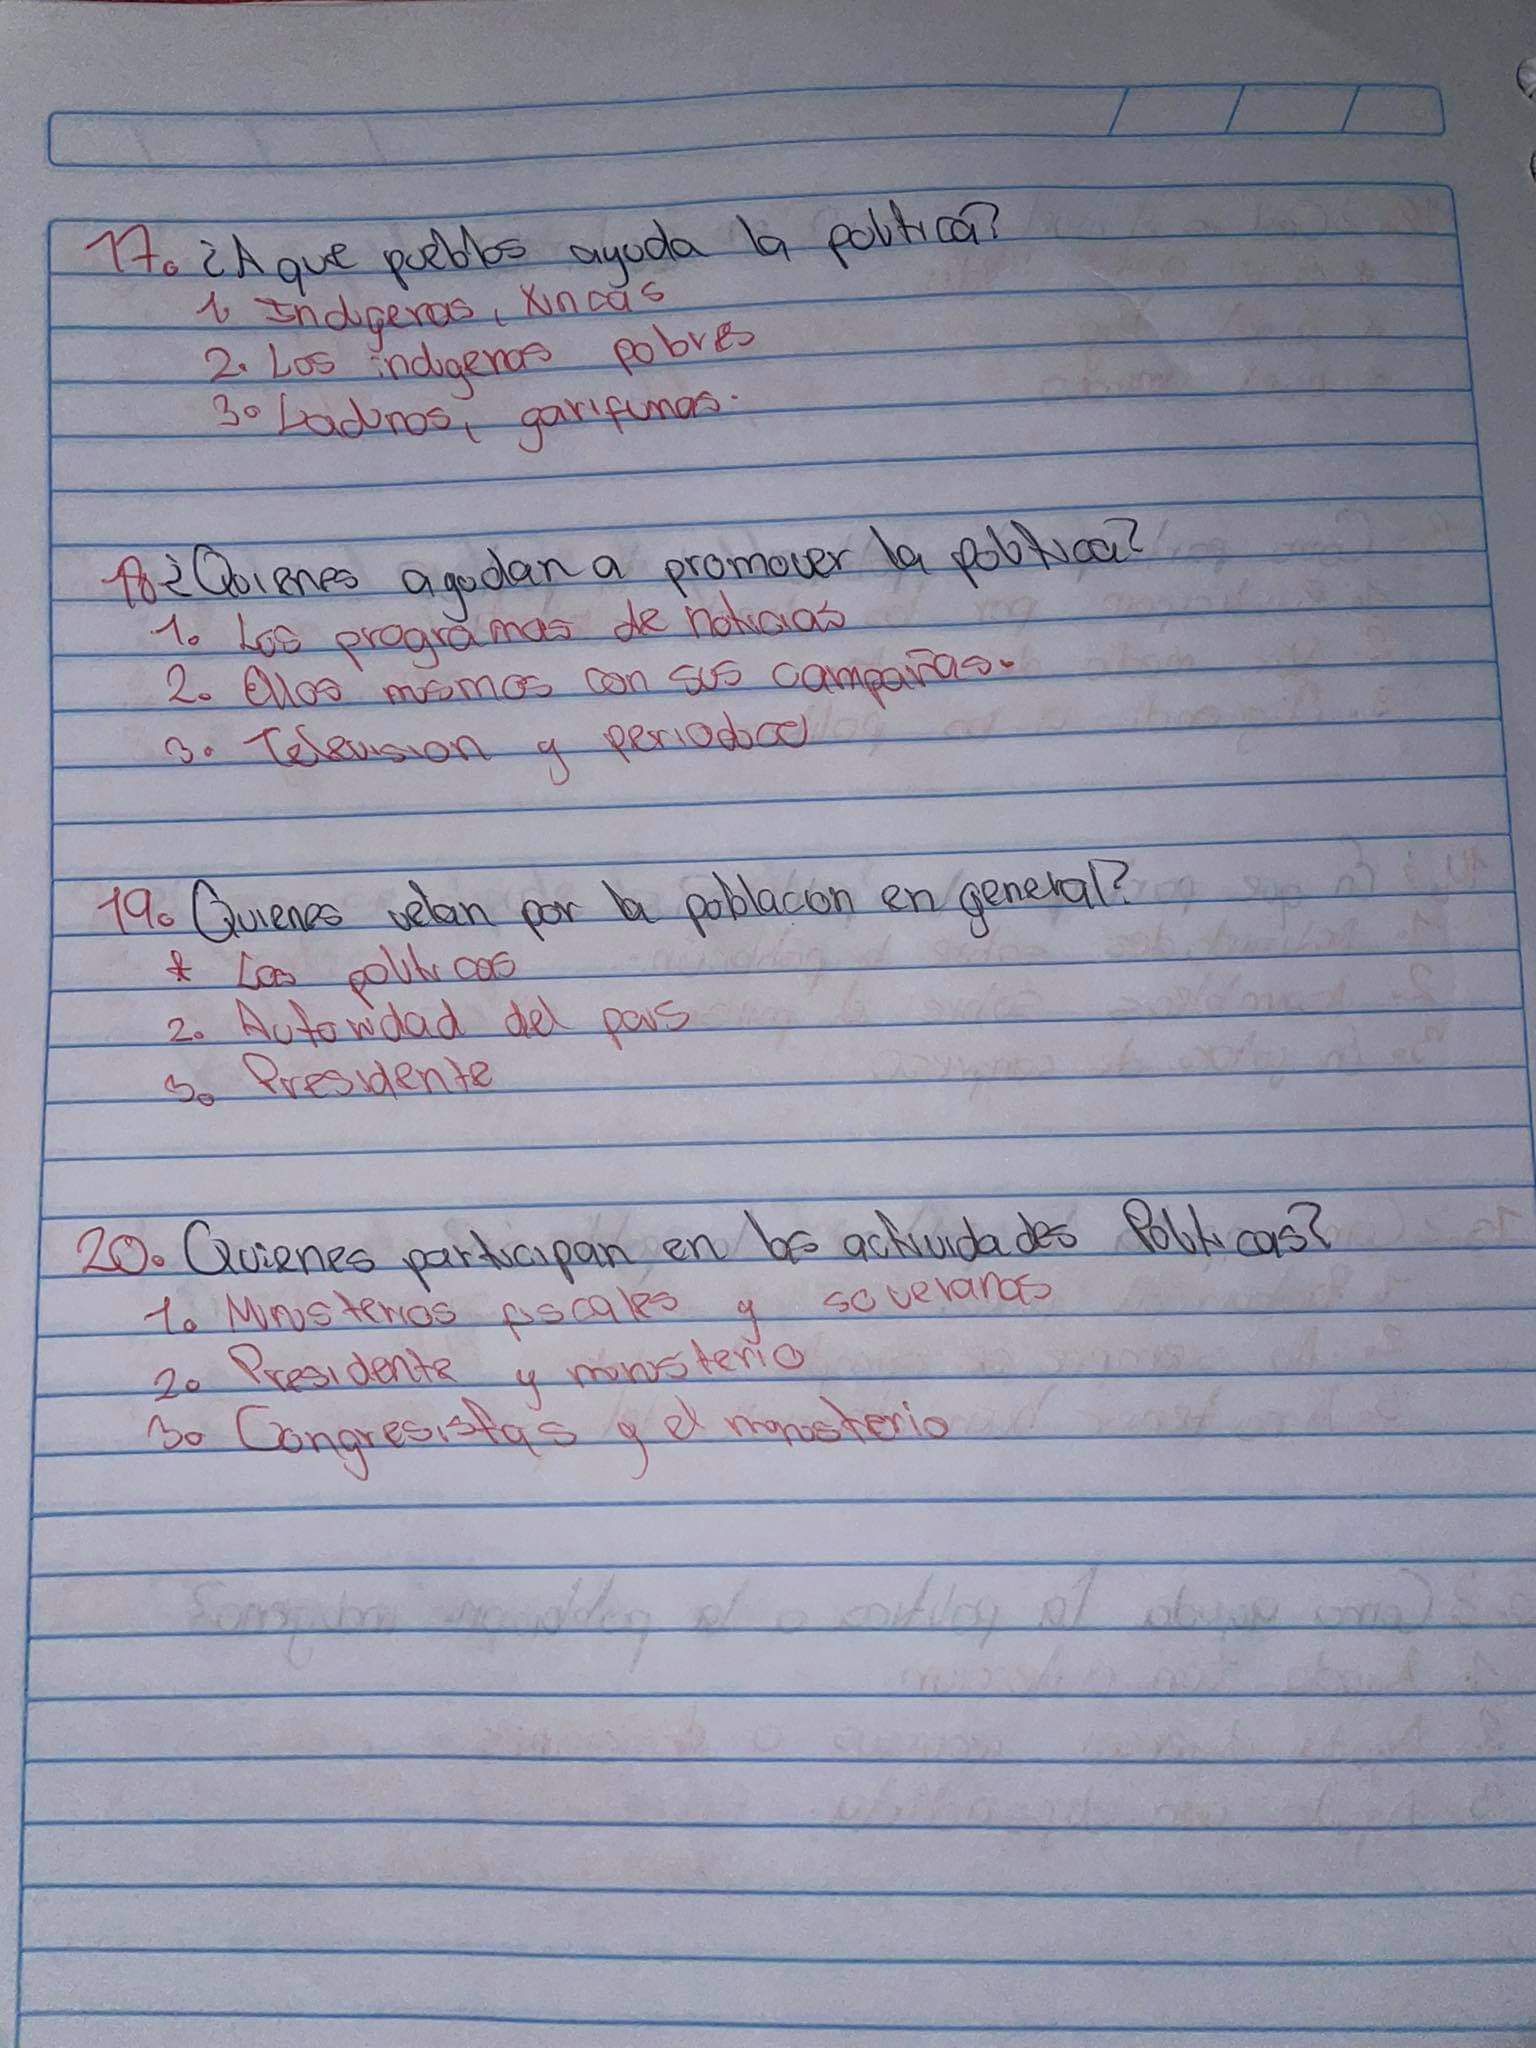 17. ¿A que pueblos ayuda la politica?
1. Indigenas, Xincas
2. Los indigenas pobres
3. Ladinos, garifunas.
18 ¿Quienes ayudan a promover la politica?
1. Los programas de noticias
2. Ellos mismos con sus campañas.
3. Television y periodico
19. Quienes velan por la poblacion en general?
* Los politicos
2. Autoridad del pais
3. Presidente
20. Quienes participan en las actividades Politicas?
1. Ministerios fiscales y soveranos
2. Presidente y ministerio
3. Congresistas y el ministerio